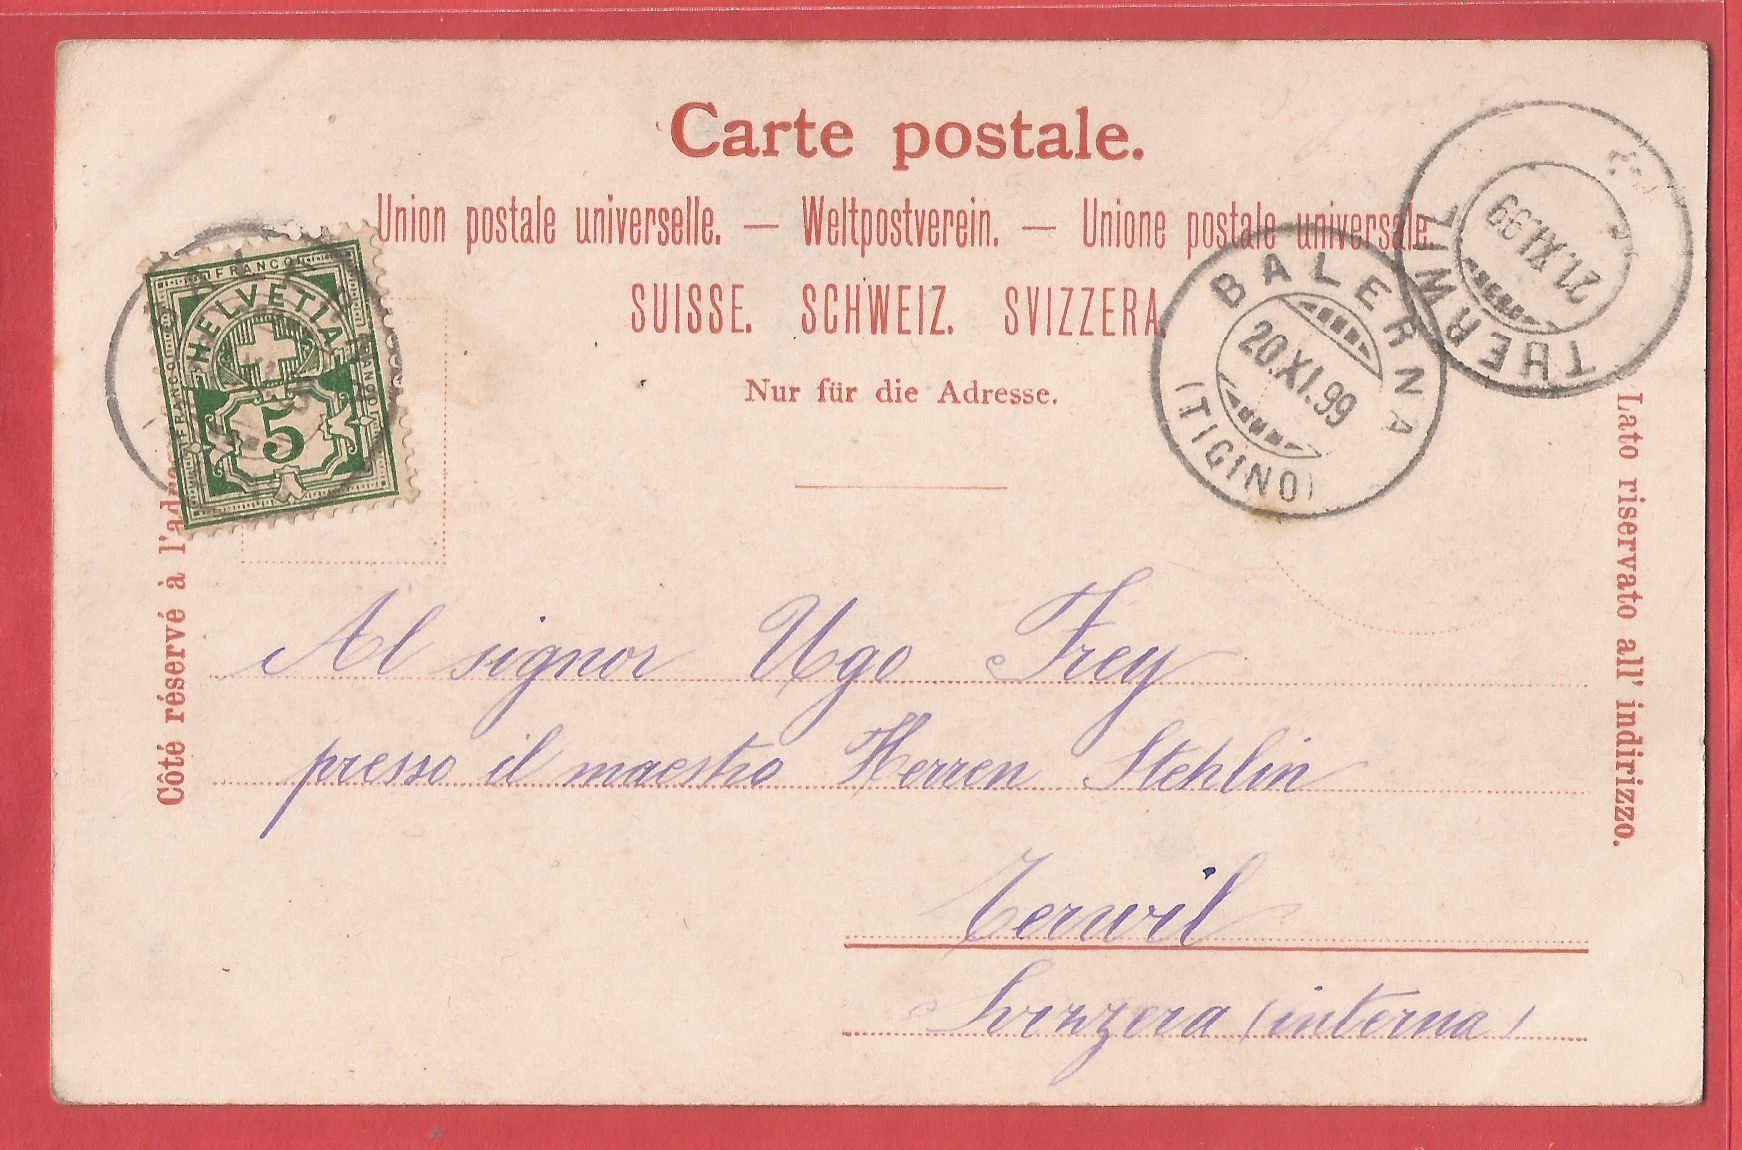 Carte postale.
Union postale universelle. — Weltpostverein. — Unione postale universale.
SUISSE. SCHWEIZ. SVIZZERA.
Nur für die Adresse.
FRANCO
HELVETIA
FRANCO
FRANCO
5
BALERNA
20.XI.99
(TICINO)
THERWIL
21.XI.99
Côté réservé à l'adre
Lato riservato all' indirizzo.
Al signor Ugo Frey
presso il maestro Herren Stehlin
Terwil
Svizzera (interna)